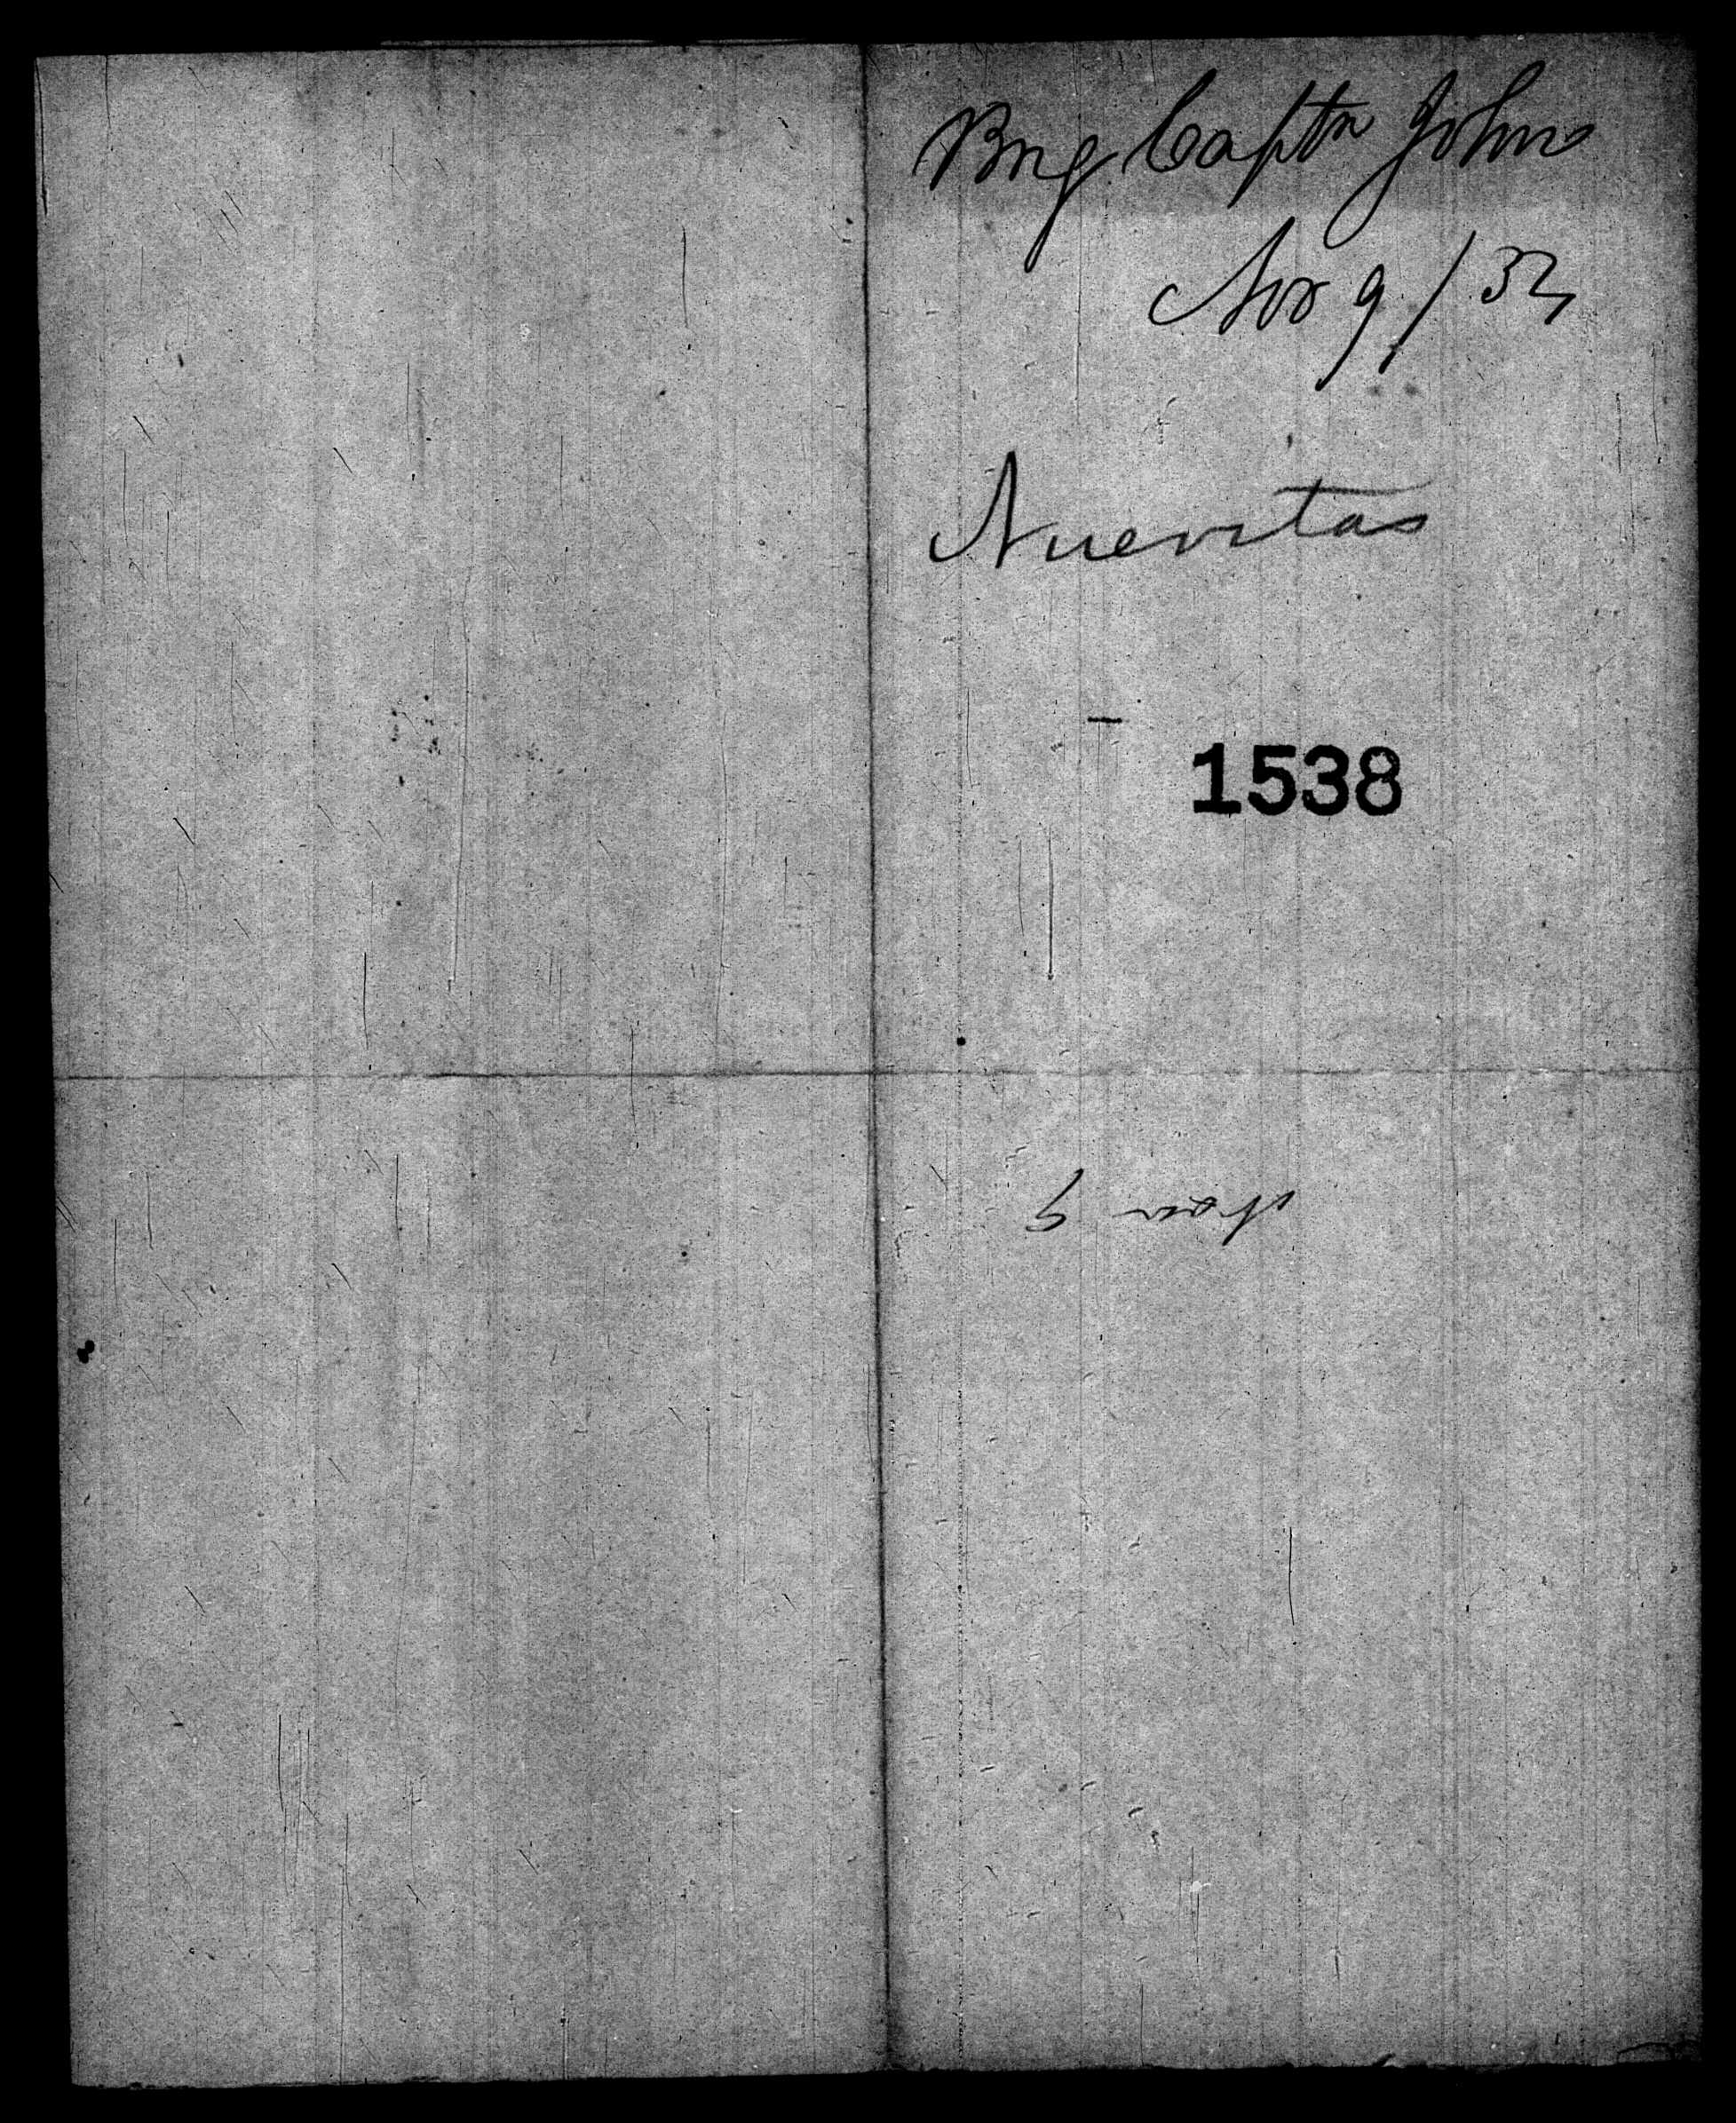 Brig Captn John
Nov 9/32
Nuevitas
1538
Nov 9